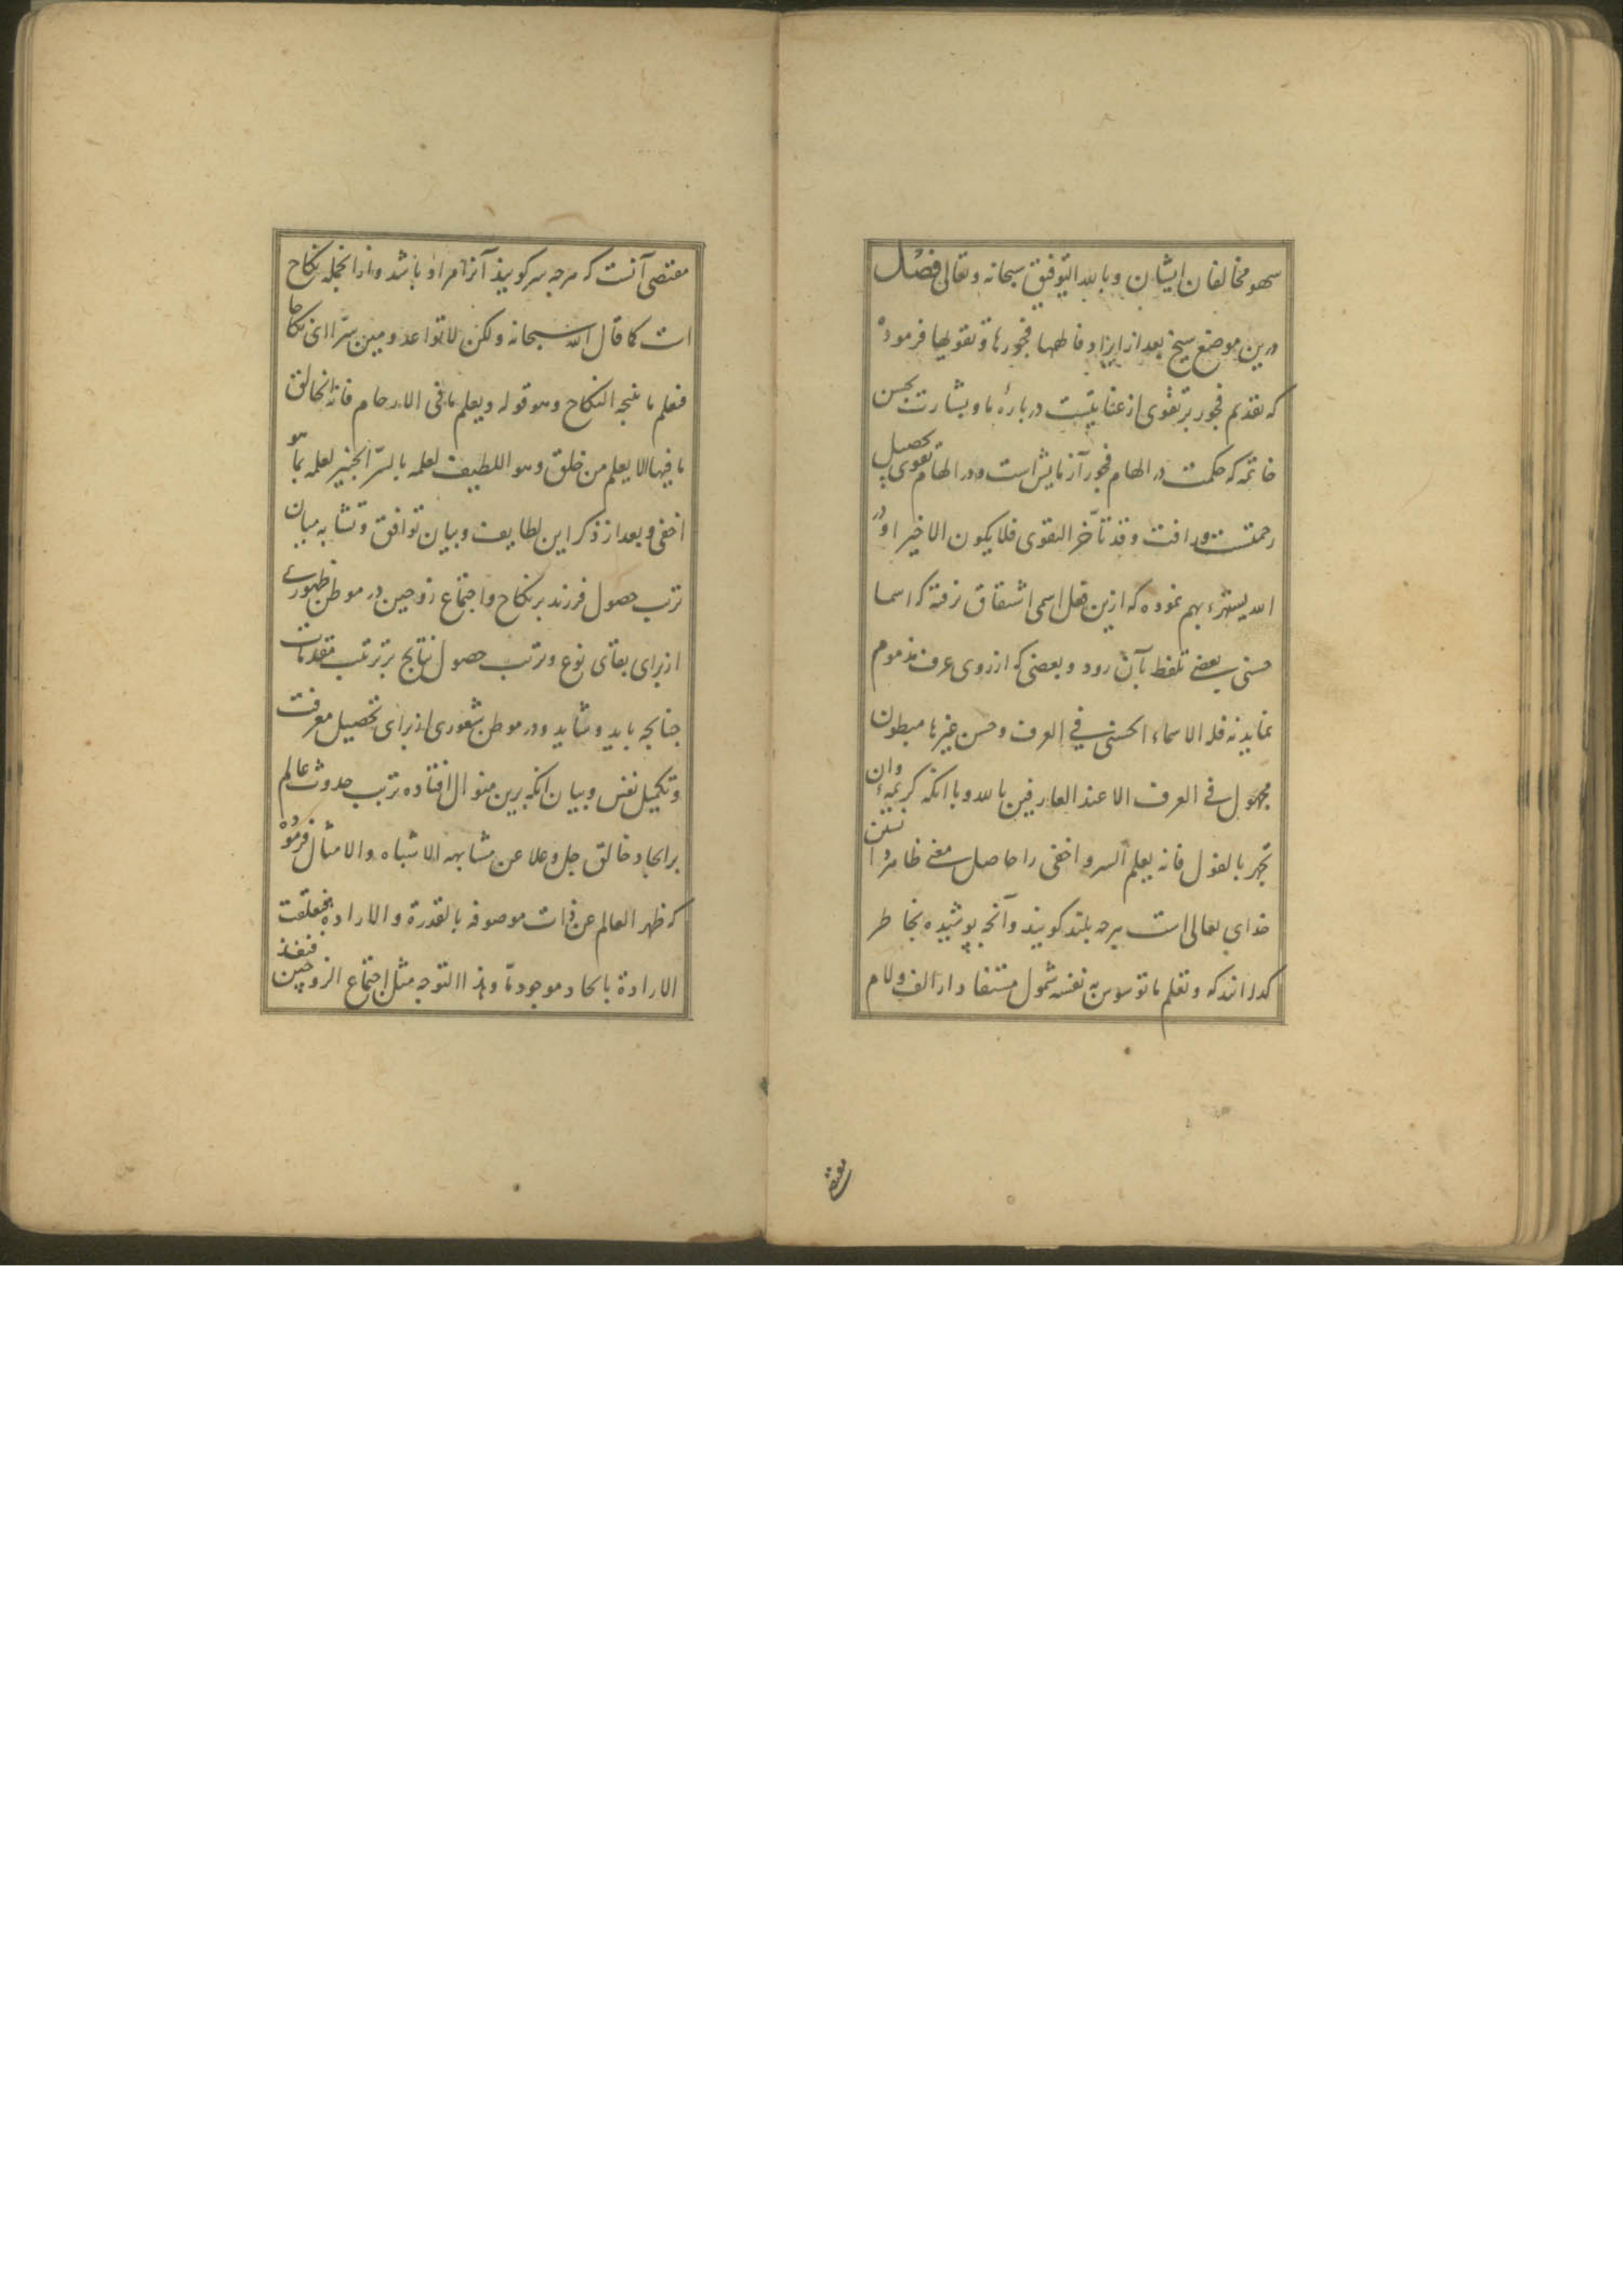 سهو مخالفان ایشان وبالله التوفیق سبحانه وتعالی فصل
درین موضع شیخ بعد از ایراد فالهمها فجورها وتقویها فرموده
که تقدیم فجور بر تقوی از عنایتیست درباره ما وبشارت بحسن
خاتمه که حکمت در الهام فجور آزمایش است ودر الهام تقوی تحصیل
رحمتست ورافت وقد تأخر التقوی فلا یکون الا خیرا ودر
الله یستهزء بهم نموده که ازین فعل اسمی اشتقاق نرفته که اسما
حسنی بعضی تلفظ بآن رود وبعضی که از روی عرف مذموم
نماید نه فله الاسماء الحسنی فی العرف وحسن غیرها مبطون
مجهول فی العرف الا عند العارفین بالله وبا آنکه کریمه وان
تجهر بالقول فانه یعلم السر واخفی را حاصل معنی ظاهر دانستن
خدای تعالی است هرچه بلند گویند وآنچه پوشیده بخاطر
گذرانند که ونعلم ما توسوس به نفسه شمول مستفاد از الف ولام
مقتضی
مقتضی آنست که هرچه سر گویند آنرا مراد باشد وازانجمله نکاح
است کما قال الله سبحانه ولکن لا تواعدوهن سرّا ای نکاحا
فعلم ما ینتجه النکاح وهو قوله ویعلم ما فی الارحام فانه الخالق
ما فیها الا یعلم من خلق وهو اللطیف لعلمه بالسرّ الخبیر لعلمه بما هو
اخفی وبعد از ذکر این لطایف وبیان توافق وتشابه میان
ترتب حصول فرزند بر نکاح واجتماع زوجین در موطن ظهوری
از برای بقای نوع وترتب حصول نتایج بر ترتیب مقدمات
چنانچه باید وشاید ودر موطن شعوری از برای تحصیل معرفت
وتکمیل نفس وبیان آنکه برین منوال افتاده ترتب حدوث عالم
بر ایجاد خالق جل وعلا عن مشابهه الاشباه والامثال فرموده
که ظهر العالم عن ذات موصوفه بالقدرة والاراده فتعلقت
الارادة بایجاد موجود ما وهذا التوجه مثل اجتماع الزوجین فنفذ